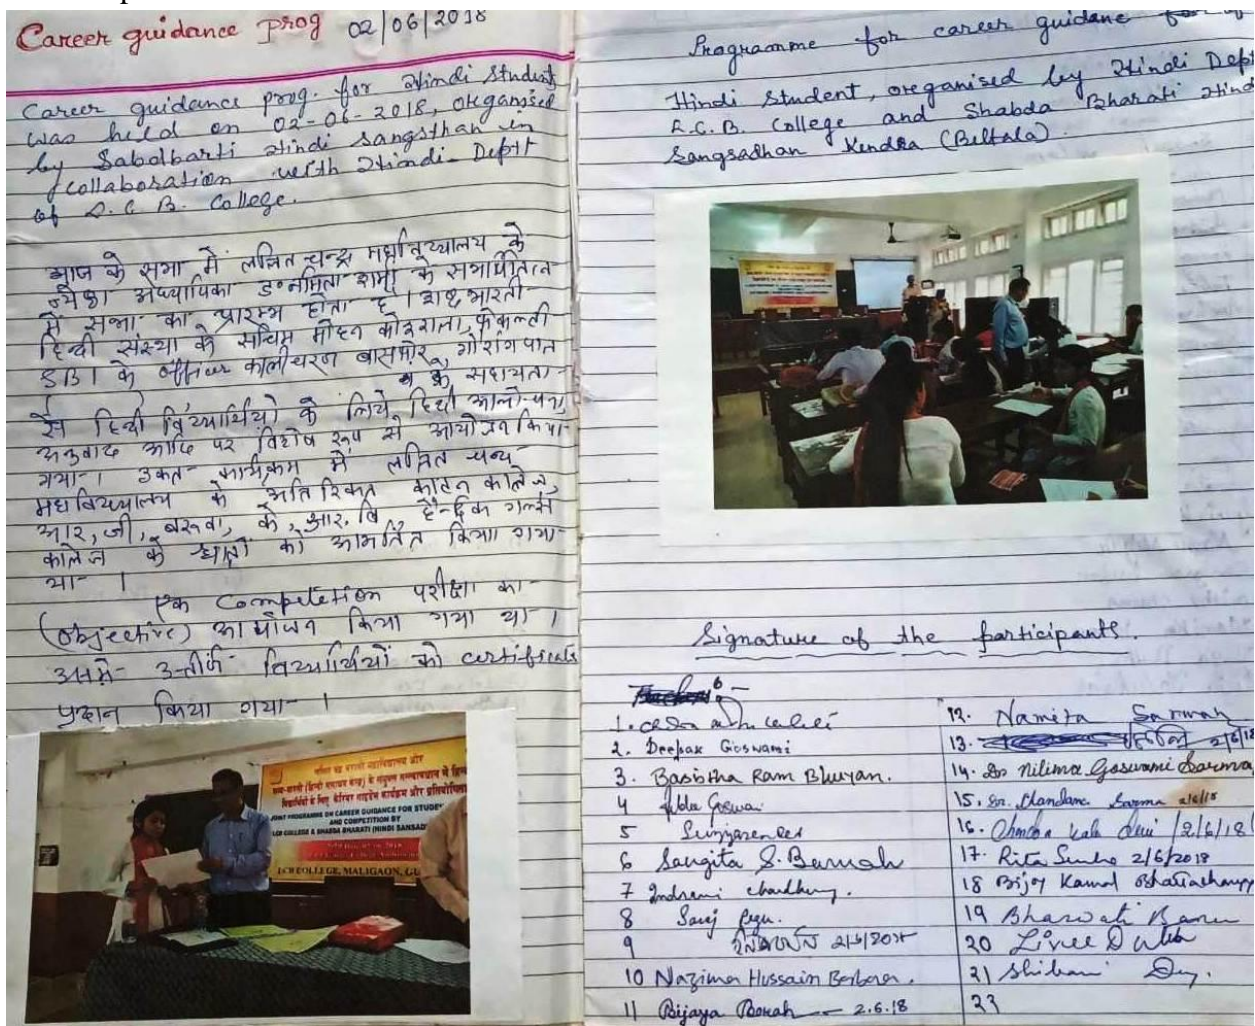 Career guidance prog 02/06/2018
Career guidance prog. for Hindi Students
was held on 02-06-2018, organised
by Sabolbarti Hindi Sangsthan in
collaboration with Hindi Deptt
of L.C.B. College.
आज के सभा में ललित चन्द्र
अध्यापिका ड॰ नमिता शर्मा के
में सभा का प्रारम्भ होता है । भारती
हिन्दी संस्था के मोहन कोइराला,
SBI के officer कालीचरण बासफोर,
के सहायता
से हिन्दी विद्यार्थियों के लिये हिन्दी
अनुवाद आदि पर विशेष रूप से आयोजन किया
गया । उक्त कार्यक्रम में ललित चन्द्र
के अतिरिक्त काटन कालेज,
आर, जी, बरुवा, के, आर. बि गर्ल्स
कालेज के छात्रों को किया गया
था ।
एक Competetion परीक्षा का
(objective) आयोजन किया गया था ।
उसमे विद्यार्थियों को certificats
प्रदान किया गया ।
ललित चंद्र भराली महाविद्यालय और
JOINT PROGRAMME ON CAREER GUIDANCE FOR STUDE
AND COMPETITION BY
LCB COLLEGE & SHABDA BHARATI (HINDI SANSAD
LCB COLLEGE, MALIGAON, GU
Programme for career guidane for
Hindi Student, oreganised by Hindi Dept
L.C.B. College and Shabda Bharati Hind
Sangsadhan Kendra (Beltola).
Signature of the participants.
1.
2. Deepak Goswami
3. Basistha Ram Bhuyan.
4
5
6 Sangita S. Baruah
7 Indrani Choudhury.
8 Saroj Pegu.
9
10 Nazima Hussain Borbora.
11 Bijaya Borah — 2.6.18
12. Namita Sarmah
13. 2/6/18
14. Dr Nilima Goswami Sarma
15. Dr. Chandana Sarma 2/6/18
16. Chandra Kala Devi /2/6/18
17. Rita Sinha 2/6/2018
18 Bijoy Kamal Bhattacharyya
19
20
21 Shibani Dey.
22